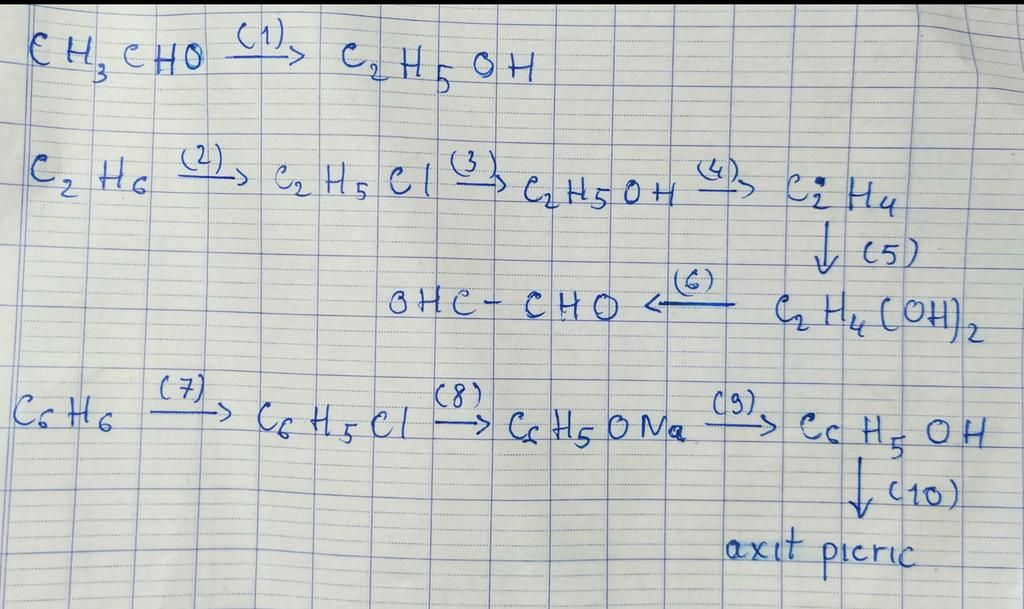 CH₃CHO (1)→ C₂H₅OH
C₂H₆ (2)→ C₂H₅Cl (3)→ C₂H₅OH (4)→ C₂H₄
↓ (5)
OHC - CHO ←(6) C₂H₄(OH)₂
C₆H₆ (7)→ C₆H₅Cl (8)→ C₆H₅ONa (9)→ C₆H₅OH
↓ (10)
axit picric